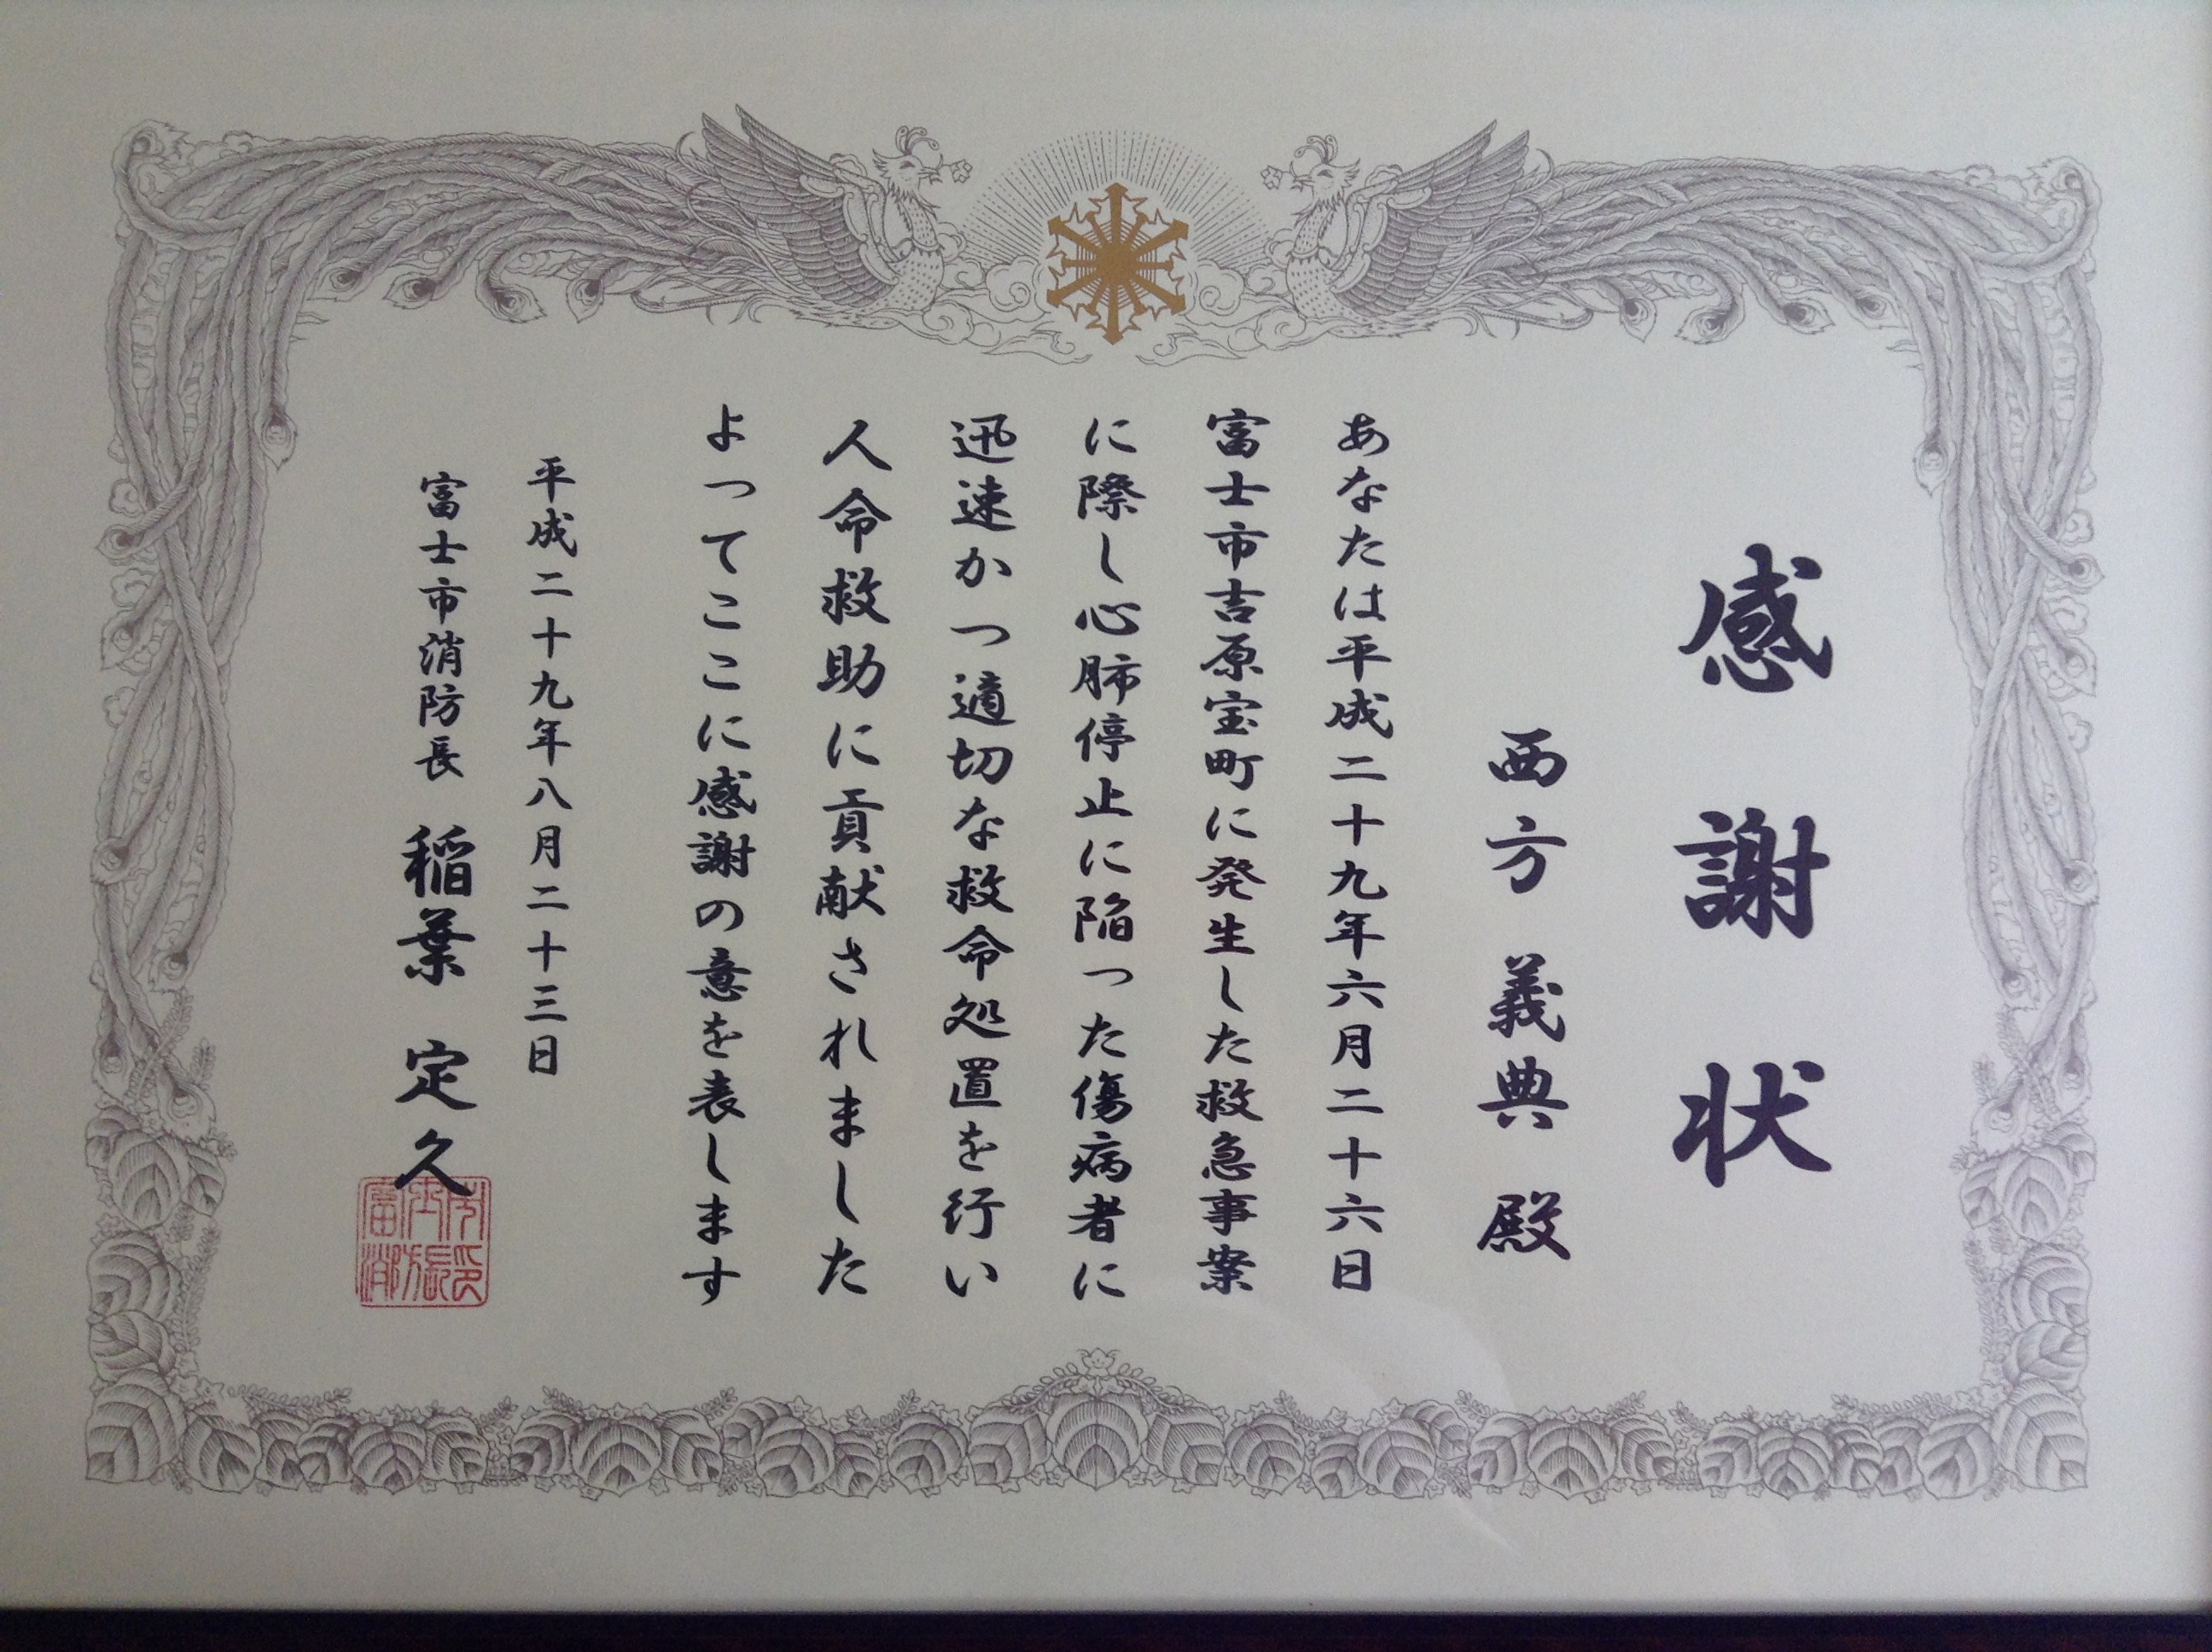 感謝状
西方 義典 殿
あなたは平成二十九年六月二十六日
富士市吉原宝町に発生した救急事案
に際し心肺停止に陥った傷病者に
迅速かつ適切な救命処置を行い
人命救助に貢献されました
よってここに感謝の意を表します
平成二十九年八月二十三日
富士市消防長 稲葉 定久